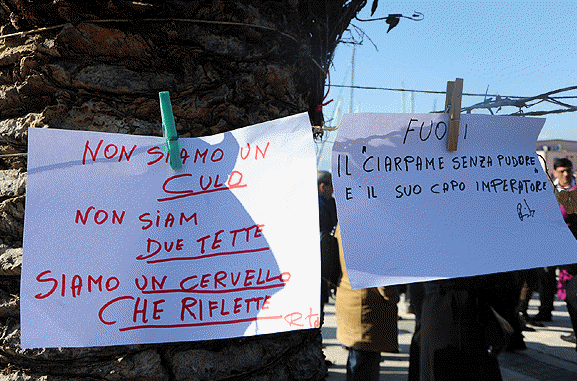 NON SIAMO UN
CULO
NON SIAM
DUE TETTE
SIAMO UN CERVELLO
CHE RIFLETTE
FUORI
IL "CIARPAME SENZA PUDORE"
E IL SUO CAPO IMPERATORE